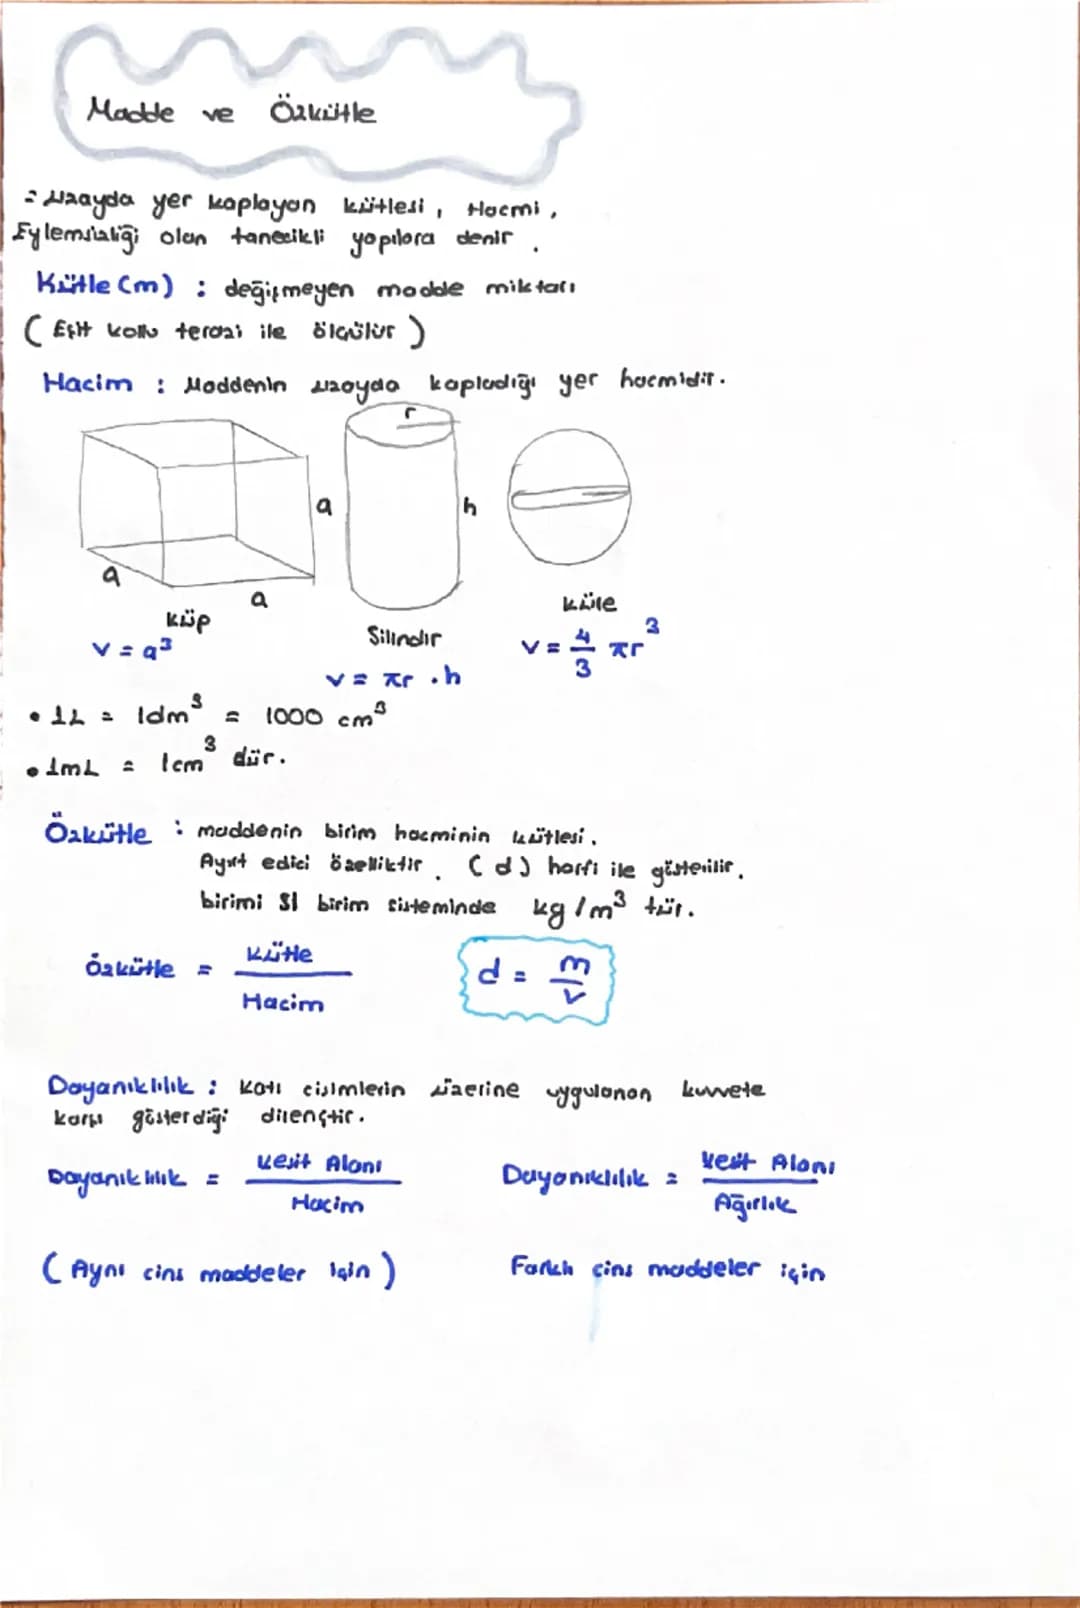 Madde ve Özkütle
= Uzayda yer kaplayan kütlesi, Hacmi,
Eylemsizliği olan tanecikli yapılara denir.
Kütle (m) : değişmeyen madde miktarı
( Eşit kollu terazi ile ölçülür )
Hacim : Maddenin uzayda kapladığı yer hacmidir.
r
a
h
a
a
küp
Silindir
küre
V = a³
V = πr . h
V = 4/3 πr³
• 1L = 1dm³ = 1000 cm³
• 1mL = 1cm³ dür.
Özkütle : maddenin birim hacminin kütlesi.
Ayırt edici özelliktir. (d) harfi ile gösterilir.
birimi SI birim sisteminde kg/m³ tür.
özkütle = kütle / Hacim
d = m / v
Dayanıklılık : Katı cisimlerin üzerine uygulanan kuvvete
karşı gösterdiği dirençtir.
Dayanıklılık = Kesit Alanı / Hacim
Dayanıklılık = Kesit Alanı / Ağırlık
( Aynı cins maddeler için )
Farklı cins maddeler için